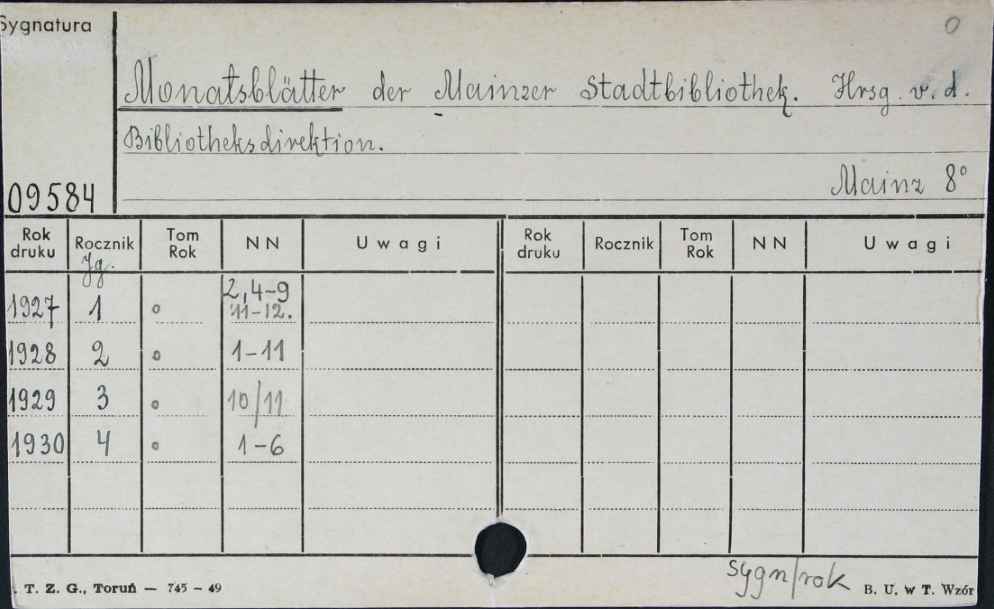 Sygnatura
0
Monatsblätter der Mainzer Stadtbibliothek. Hrsg. v. d.
Bibliotheksdirektion.
Mainz 8°
09584
Rok druku Rocznik Tom Rok NN Uwagi Rok druku Rocznik Tom Rok NN Uwagi
Jg.
1927 1 ° 2, 4-9
11-12.
1928 2 ° 1-11
1929 3 ° 10/11
1930 4 ° 1-6
sygn/rok
T. Z. G., Toruń — 745 - 49 B. U. w T. Wzór